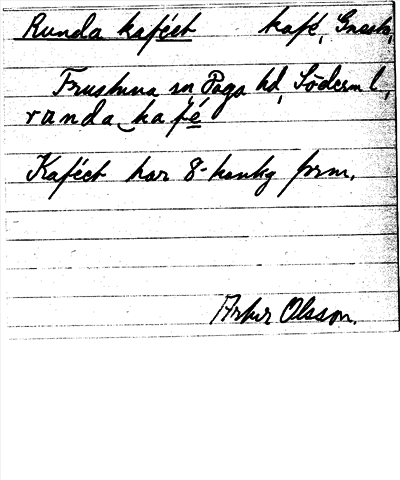 Runda kaféet kafé, Gnesta,
Frustuna sn Daga hd, Söderm l,
runda kafé
Kaféet har 8-kantig form.
Artur Olsson.